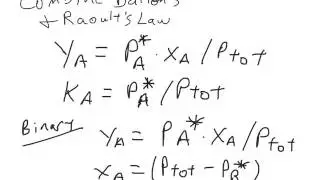 Combine Dalton's
& Raoult's Law
y_A = P_A^* · x_A / P_tot
K_A = P_A^* / P_tot
Binary y_A = P_A^* · x_A / P_tot
x_A = (P_tot - P_B^*)